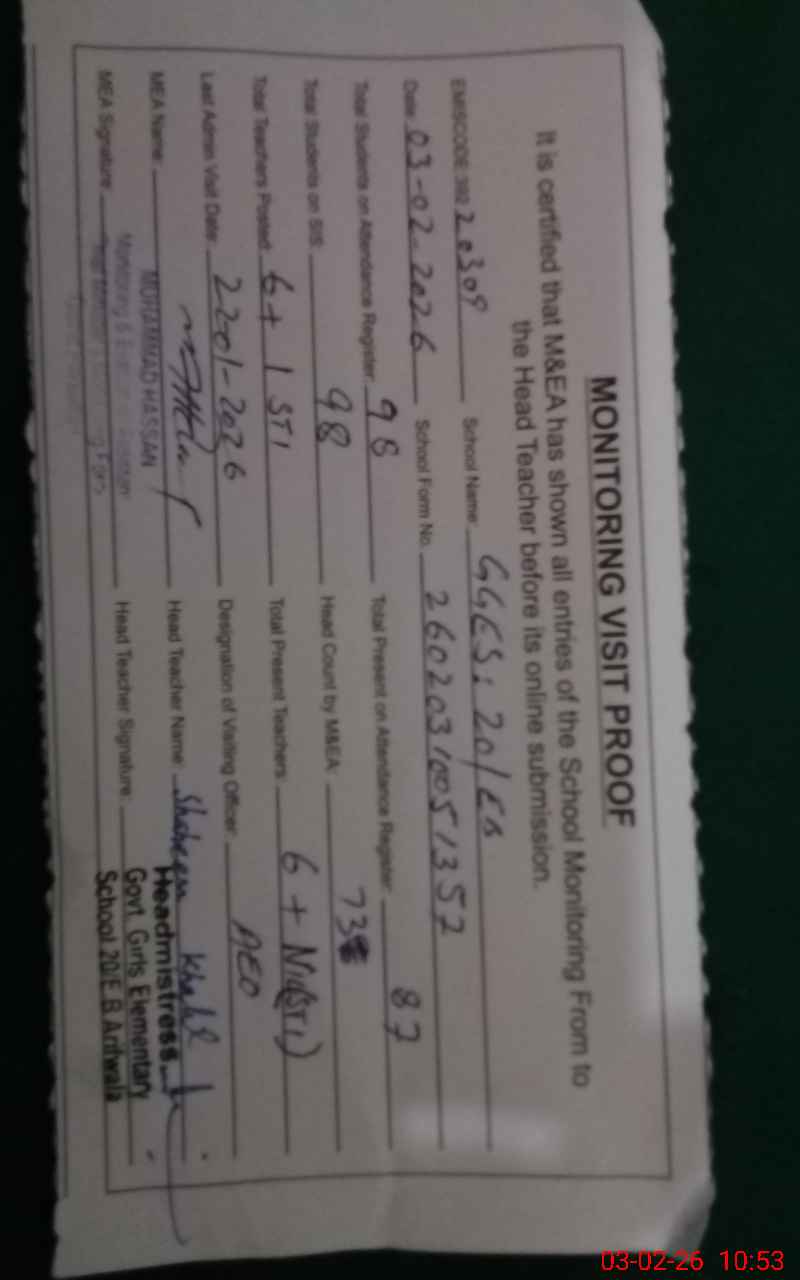 MONITORING VISIT PROOF
It is certified that M&EA has shown all entries of the School Monitoring From to
the Head Teacher before its online submission.
EMISCODE: 392 20309 School Name: GGES, 20/EB
Date: 03-02-2026 School Form No. 26020310051352
Total Students on Attendance Register: 98 Total Present on Attendance Register: 87
Total Students on SIS: 98 Head Count by M&EA: 73
Total Teachers Posted: 6 + 1 STI Total Present Teachers: 6 + Nil(STI)
Last Admin Visit Date: 22-01-2026 Designation of Visiting Officer: AEO
MEA Name: MUHAMMAD HASSAN Head Teacher Name: Shaheen Khalil
MEA Signature: Monitoring & Head Teacher Signature:
Headmistress
Govt. Girls Elementary
School 20/E.B Arifwala
03-02-26 10:53